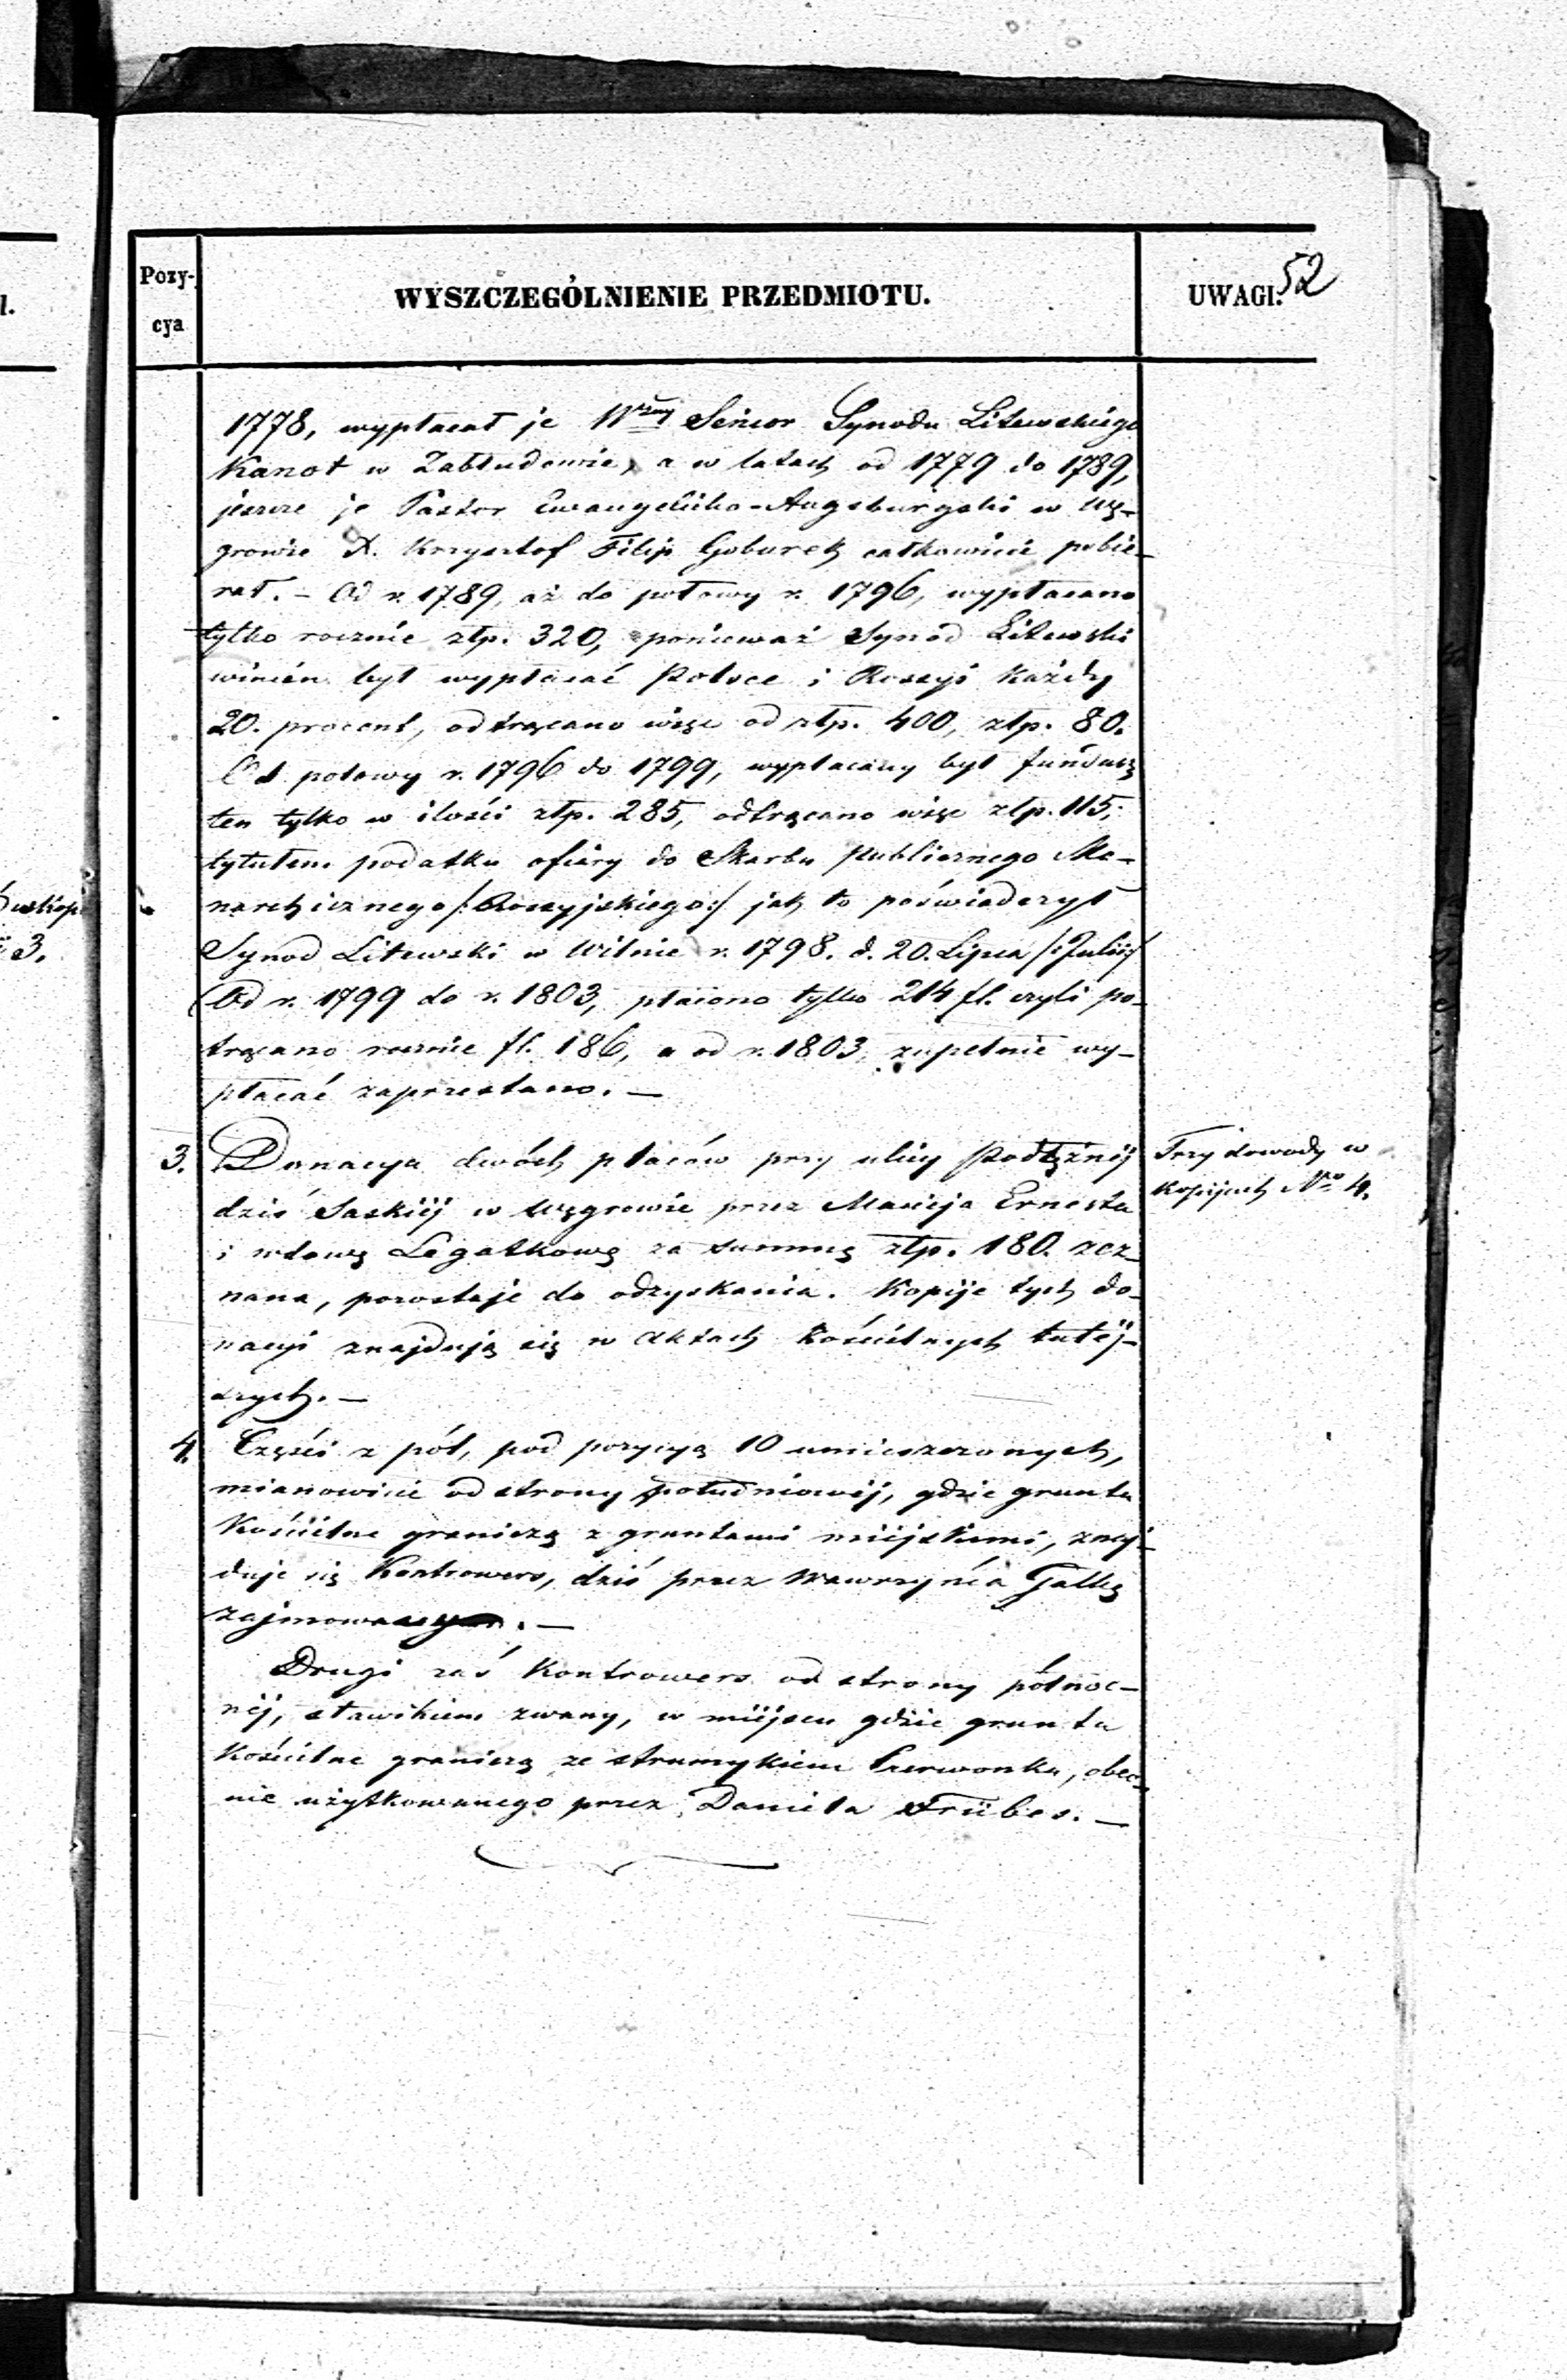 l.
Pozy-
cya
WYSZCZEGÓLNIENIE PRZEDMIOTU.
UWAGI.
52
1778, wypłacał je Senior Synodu Litewskiego
Kanot w Zabłudowie, a w latach od 1779 do 1789,
jeszcze je Pastor Ewangelicko-Augsburgski w Wę-
growie X. Krzysztof Filip Goburek całkowicie pobie-
rał. – Od r. 1789, aż do połowy r. 1796, wypłacano
tylko rocznie złp. 320, ponieważ Synod Litewski
winien był wypłacać Polsce i Rossyi każdy
20. procent, odtrącano więc od złp. 400, złp. 80.
Od połowy r. 1796 do 1799, wypłacany był fundusz
ten tylko w ilości złp. 285, odtrącano więc złp. 115,
tytułem podatku ofiary do Skarbu publicznego Mo-
narchicznego /:Rossyjskiego:/ jak to poświadczył
Synod Litewski w Wilnie r. 1798. d. 20. Lipca /:Julii:/
Od r. 1799 do r. 1803, płacono tylko 214 fl. czyli po-
trącano rocznie fl. 186, a od r. 1803, zupełnie wy-
płacać zaprzestano. —
3.
Donacya dwóch placów przy ulicy
dziś Saskiéj w Węgrowie przez Macieja Ernesta
i wdowę Legatkową za summę złp. 180. zez-
nana, pozostaje do odzyskania. Kopije tych do-
nacyi znajdują się w Aktach Kościelnych tutéj-
szych. —
Trzy dowody w
kopijach No 4.
4.
Części z pól, pod pozycyą 10 umieszczonych,
mianowicie od strony południowéj, gdzie grunta
Kościelne graniczą z gruntami miejskiemi, znaj-
duje się Kontrowers, dziś przez Wawrzyńca Gałkę
. —
Drugi zaś Kontrowers od strony północ-
néj, stawikiem zwany, w miéjscu gdzie grunta
Kościelne graniczą ze strumykiem Czerwonka, obec-
nie użytkowanego przez Daniela Trübes. —
3.